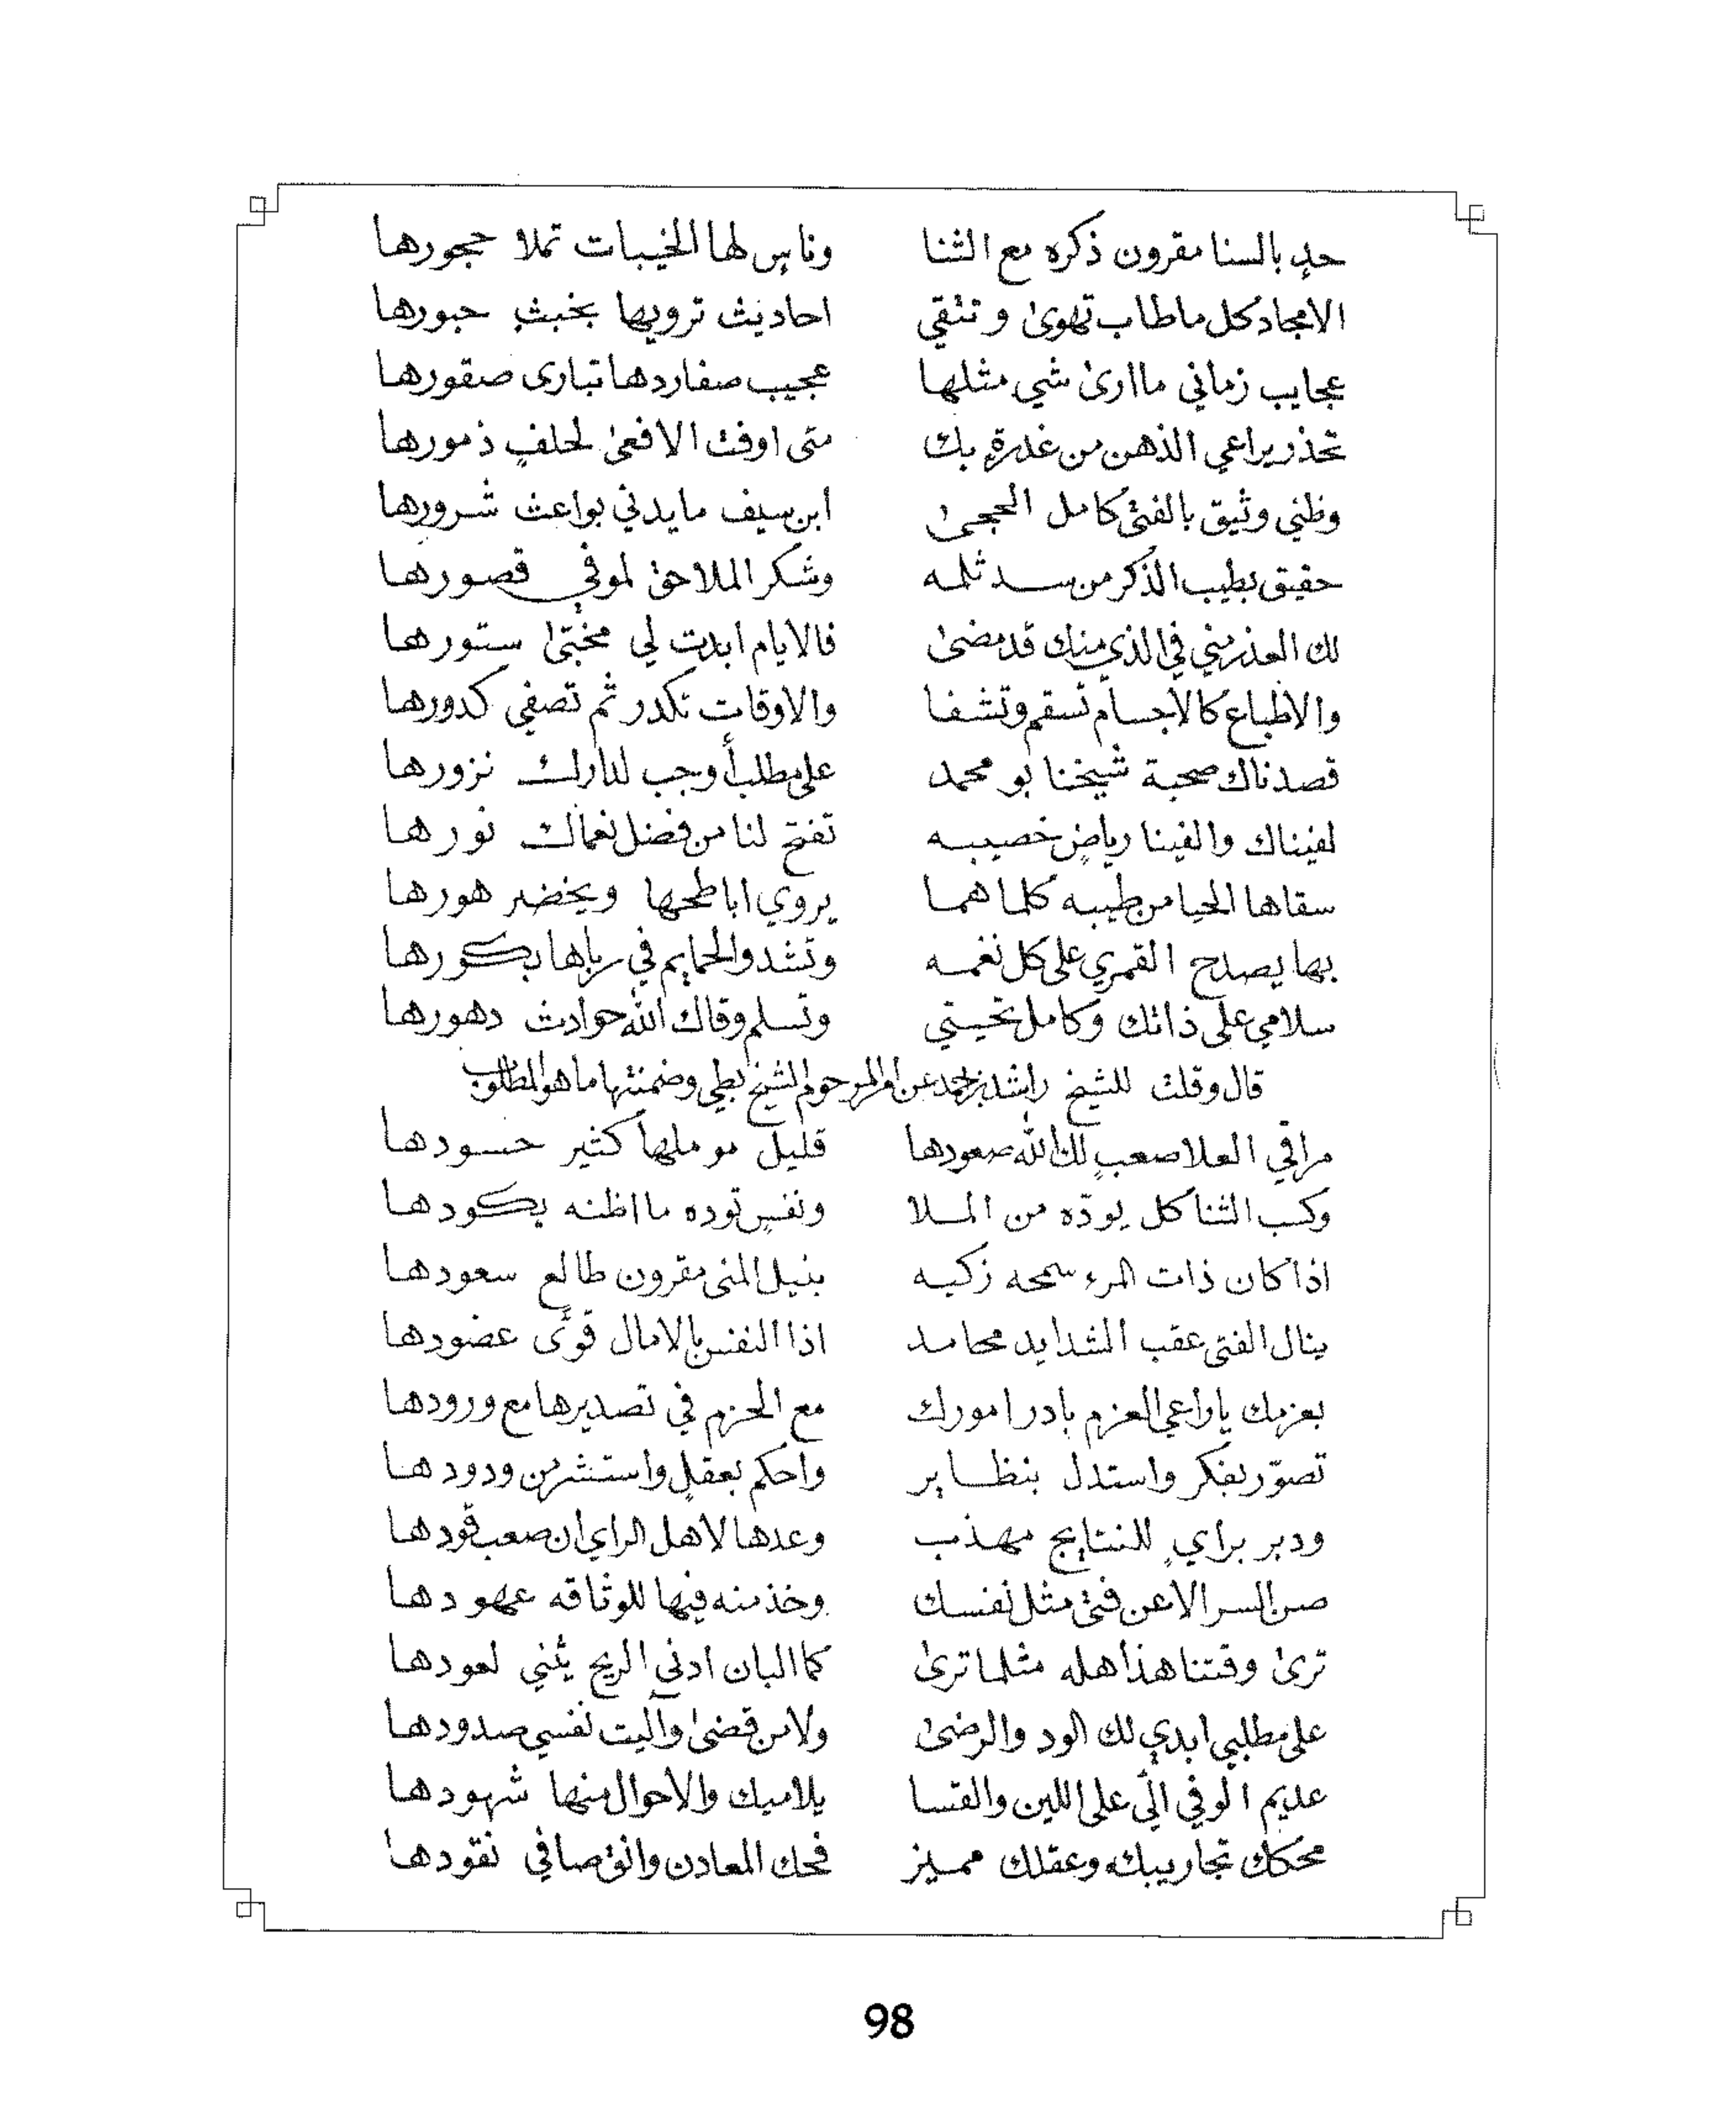 حدٍ بالسنا مقرون ذكره مع الثنا وناسٍ لها الخيبات تملا حجورها
الامجاد كل ما طاب تهوىٰ وتنقي احاديث ترويها بخبثٍ حبورها
عجايب زماني ما ارىٰ شي مثلها عجيب صفاردها تبارى صقورها
تحذر يراعي الذهن من غدرةٍ بك متى اوفت الافعىٰ لحلفٍ ذمورها
وظني وثيق بالفتىٰ كامل الحجىٰ ابن سيف ما يدني بواعث شرورها
حقيق بطيب الذكر من سد ثلمه وشكر الملاحق لموفي قصورها
لك العذر مني في الذي منك قد مضىٰ فالايام ابدت لي مختبىٰ ستورها
والاطباع كالأجسام تسقم وتشفا والاوقات تكدر ثم تصفي كدورها
قصدناك صحبة شيخنا بو محمد على مطلبٍ أوجب لدارك نزورها
لفيناك والفينا رياضٍ خصيبه تفتح لنا من فضل نعماك نورها
سقاها الحيا من طيبه كلما هما يروي اباطحها ويخضر هورها
بها يصدح القمري على كل نغمه وتشدو الحمايم في رباها بكورها
سلامي على ذاتك وكامل تحيتي وتسلم وقاك الله حوادث دهورها
قال وقلت للشيخ راشد بن احمد عن امر المرحوم الشيخ بطي وضمنتها ما هو المطلوب
مراقي العلا صعبٍ لك الله صعودها قليل مو ملها كثير حسودها
وكسب الثنا كل يودّه من الملا ونفسٍ توده ما اظنه يكودها
اذا كان ذات المرء سمحه زكيه بنيل المنى مقرون طالع سعودها
ينال الفتى عقب الشدايد محامد اذا النفس بالامال قوّى عضودها
بعزمك يا راعي العزم بادر امورك مع الحزم في تصديرها مع ورودها
تصوّر بفكر واستدل بنظاير واحكم بعقلٍ واستشر من ودودها
ودبر برايٍ للنتايج مهذب وعدها لاهل الراي ان صعب قودها
صن السر الا عن فتىٰ مثل نفسك وخذ منه فيها للوثاقه عهودها
ترىٰ وقتنا هذا هله مثلما ترىٰ كما البان ادنى الريح يثني لعودها
على مطلبي ابدي لك الود والرضىٰ ولا من قضىٰ وآليت نفسي صدودها
عديم الوفي الّي على اللين والقسا يلاميك والاحوال منها شهودها
محكك تجاريبك وعقلك مميز فحك المعادن وانق صافي نقودها
98